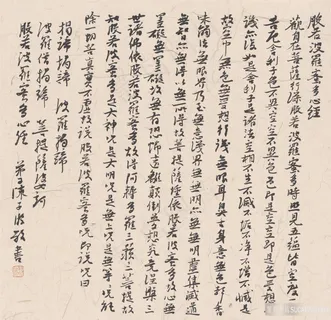 般若波羅蜜多心經
觀自在菩薩行深般若波羅蜜多時照見五蘊皆空度
一切苦厄舍利子色不異空空不異色色即是空空即是色受想
行識亦復如是舍利子是諸法空相不生不滅不垢不淨不增不減是
故空中無色無受想行識無眼耳鼻舌身意無色聲香
味觸法無眼界乃至無意識界無無明盡苦集滅道
無智亦無得以無所得故菩提薩埵依般若波羅蜜多故心無
罣礙無罣礙故無有恐怖遠離顛倒夢想究竟涅槃三
世諸佛依般若波羅蜜多故得阿耨多羅三藐三菩提故
知般若波羅蜜多是大神咒是大明咒是無上咒是無等等咒能
除一切苦真實不虛故說般若波羅蜜多咒即說咒曰
揭諦揭諦 波羅揭諦
波羅僧揭諦 菩提薩婆訶
般若波羅蜜多心經 弟子陳 敬書